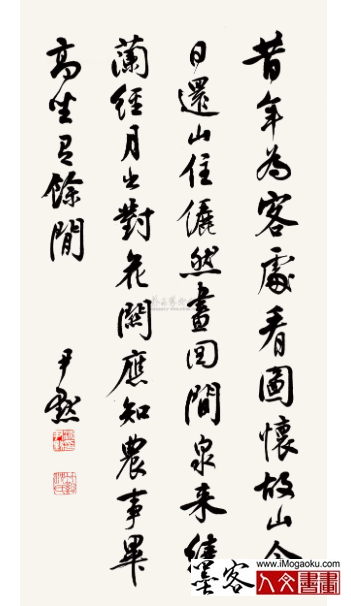 昔年為客處看圖懷故山今
日還山住儼然畫图間泉來繞
蘭徑月出對花關應知農事畢
高坐有餘閒
尹默
墨客
www.iMogaoku.com
人文書畫